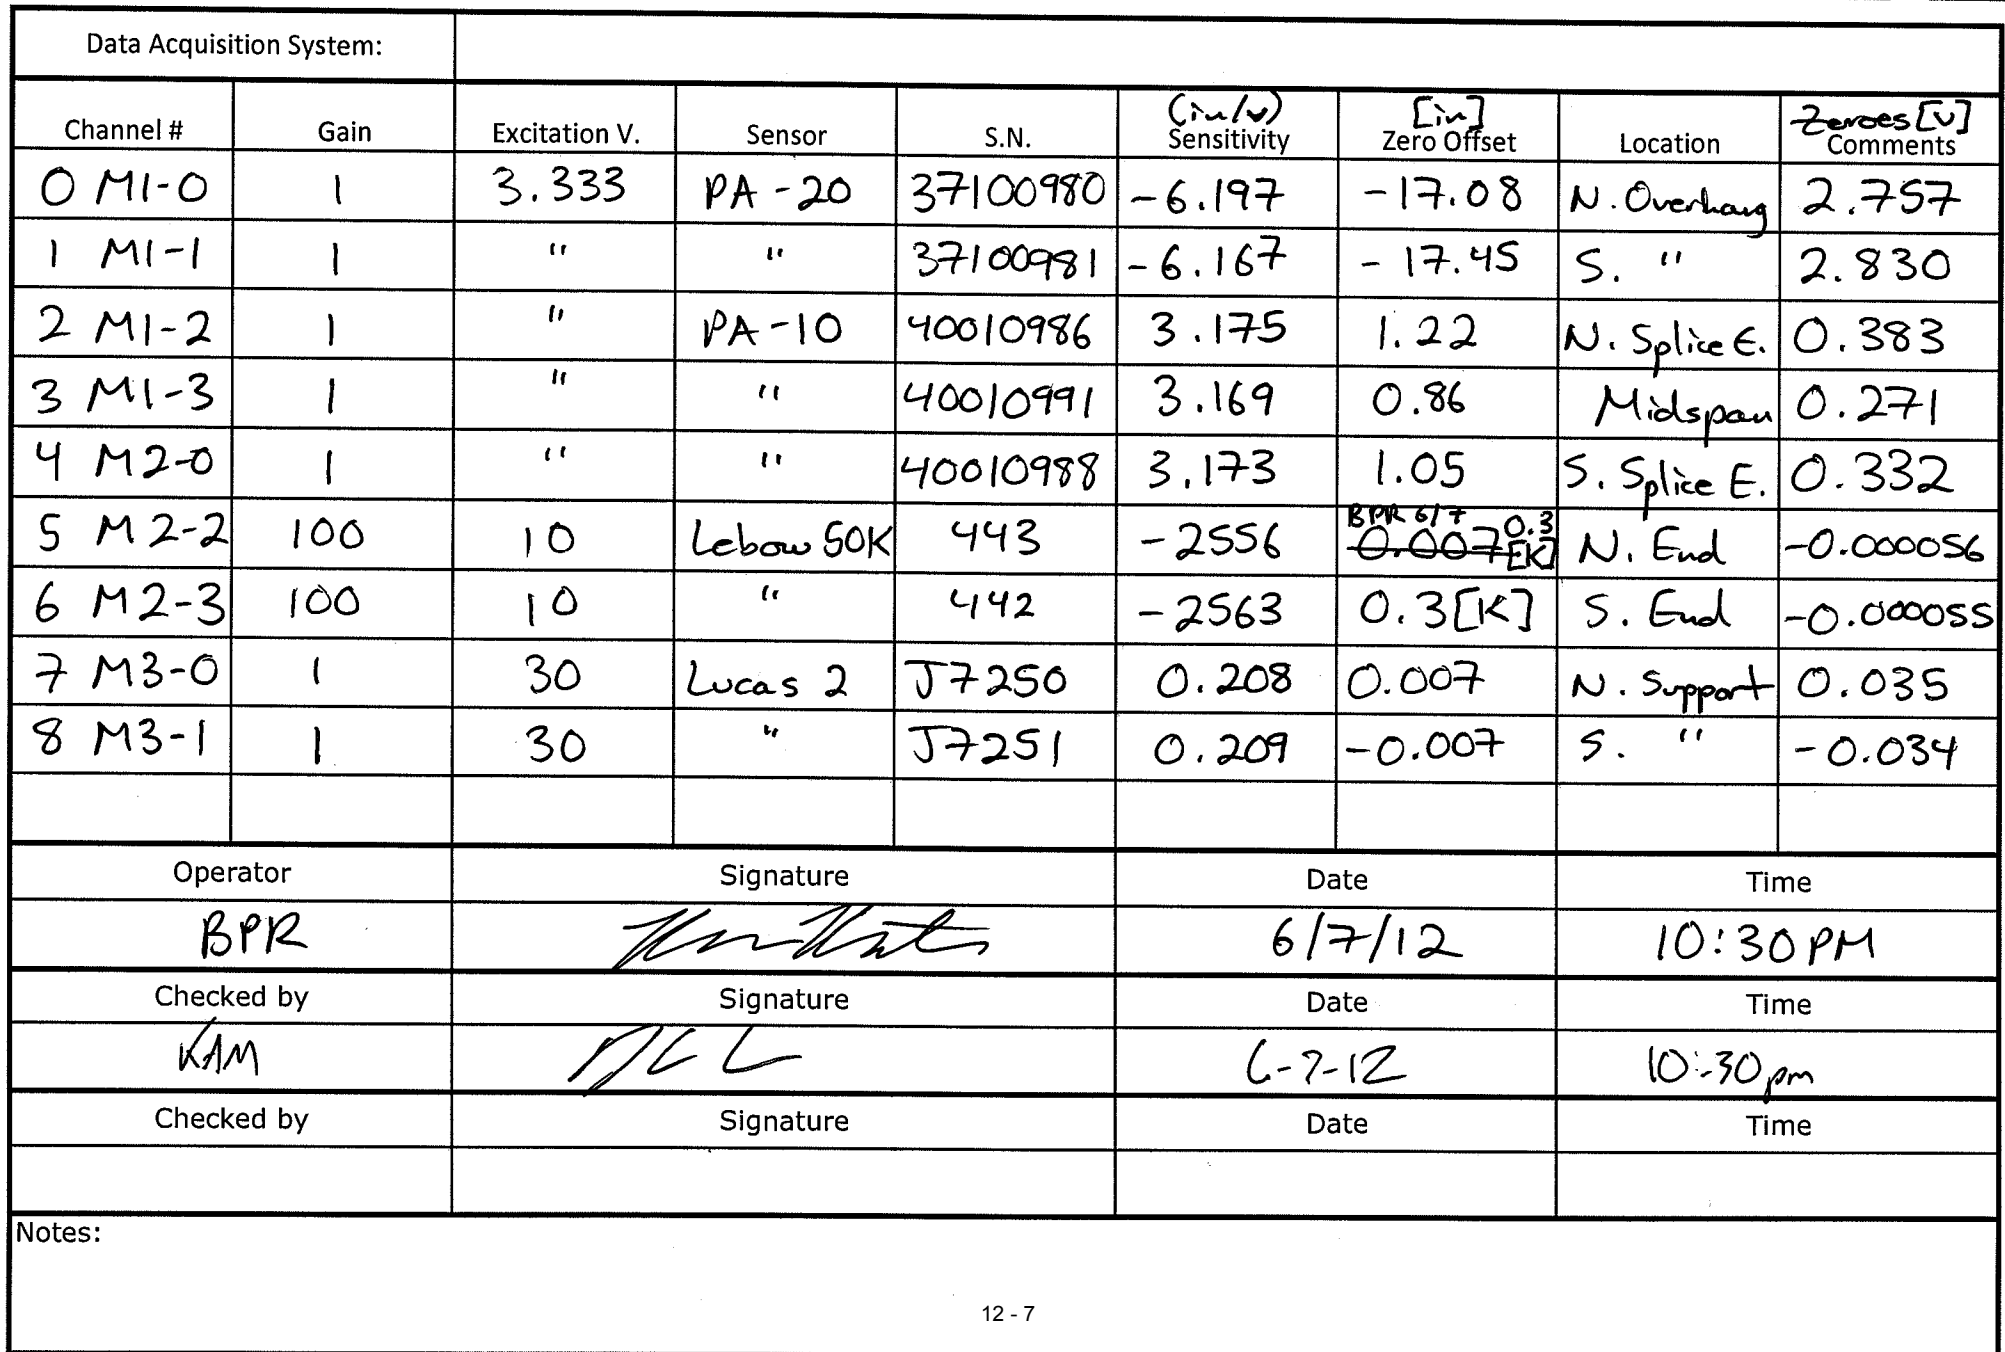 Data Acquisition System:
(in/v) [in] Zeroes [v]
Channel # Gain Excitation V. Sensor S.N. Sensitivity Zero Offset Location Comments
0 M1-0 1 3.333 PA-20 37100980 -6.197 -17.08 N. Overhang 2.757
1 M1-1 1 " " 37100981 -6.167 -17.45 S. " 2.830
2 M1-2 1 " PA-10 40010986 3.175 1.22 N. Splice E. 0.383
3 M1-3 1 " " 40010991 3.169 0.86 Midspan 0.271
4 M2-0 1 " " 40010988 3.173 1.05 S. Splice E. 0.332
BPR 6/7 0.3
5 M2-2 100 10 Lebow 50K 443 -2556 0.007 [K] N. End -0.000056
6 M2-3 100 10 " 442 -2563 0.3 [K] S. End -0.000055
7 M3-0 1 30 Lucas 2 J7250 0.208 0.007 N. Support 0.035
8 M3-1 1 30 " J7251 0.209 -0.007 S. " -0.034
Operator Signature Date Time
BPR 6/7/12 10:30 PM
Checked by Signature Date Time
KAM 6-7-12 10:30 pm
Checked by Signature Date Time
Notes:
12 - 7